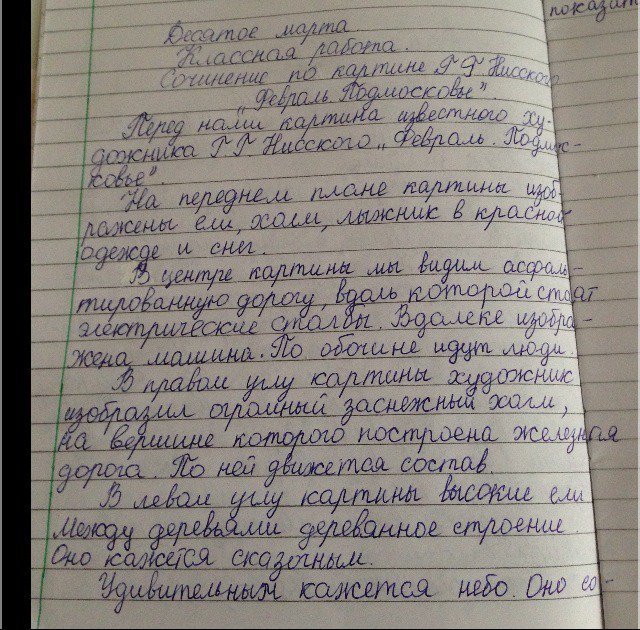 показат
Десятое марта
Классная работа.
Сочинение по картине Г Г Нисского
„Февраль. Подмосковье".
Перед нами картина известного ху-
дожника Г Г Нисского „Февраль. Подмос-
ковье".
На переднем плане картины изоб-
ражены ели, холм, лыжник в красной
одежде и снег.
В центре картины мы видим асфаль-
тированную дорогу, вдоль которой стоят
электрические столбы. Вдалеке изобра-
жена машина. По обочине идут люди.
В правом углу картины художник
изобразил огромный заснежный холм,
на вершине которого построена железная
дорога. По ней движется состав.
В левом углу картины высокие ели
Между деревьями дереванное строение.
Оно кажется сказочным.
Удивительным кажется небо. Оно со-